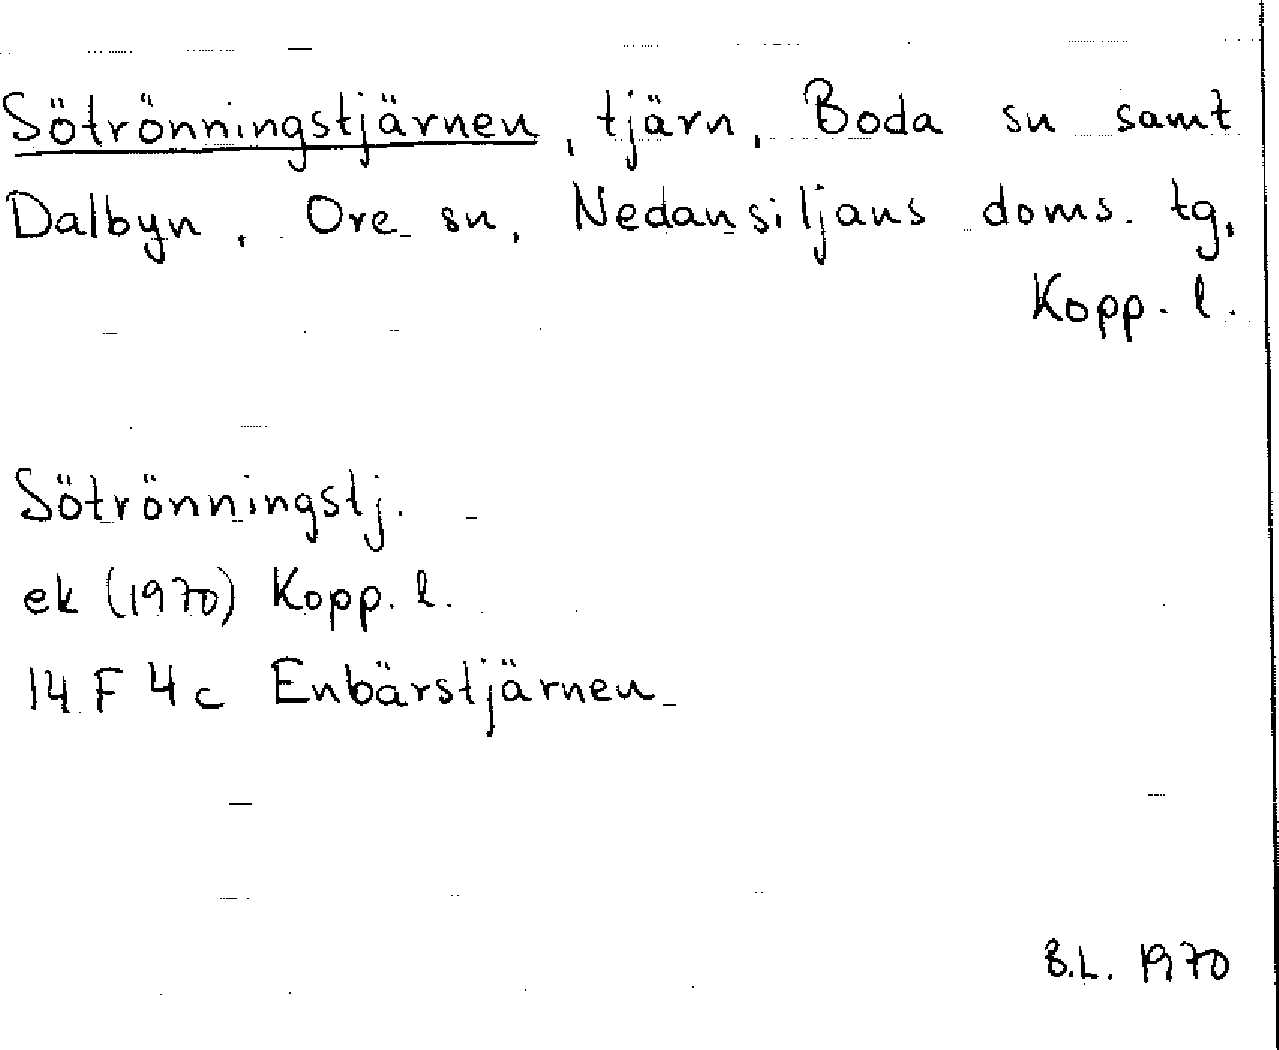 Sötrönningstjärnen, tjärn, Boda sn samt
Dalbyn, Ore sn, Nedansiljans doms. tg,
Kopp. l.
Sötrönningstj.
ek (1970) Kopp. l.
14 F 4c Enbärstjärnen
B.L. 1970